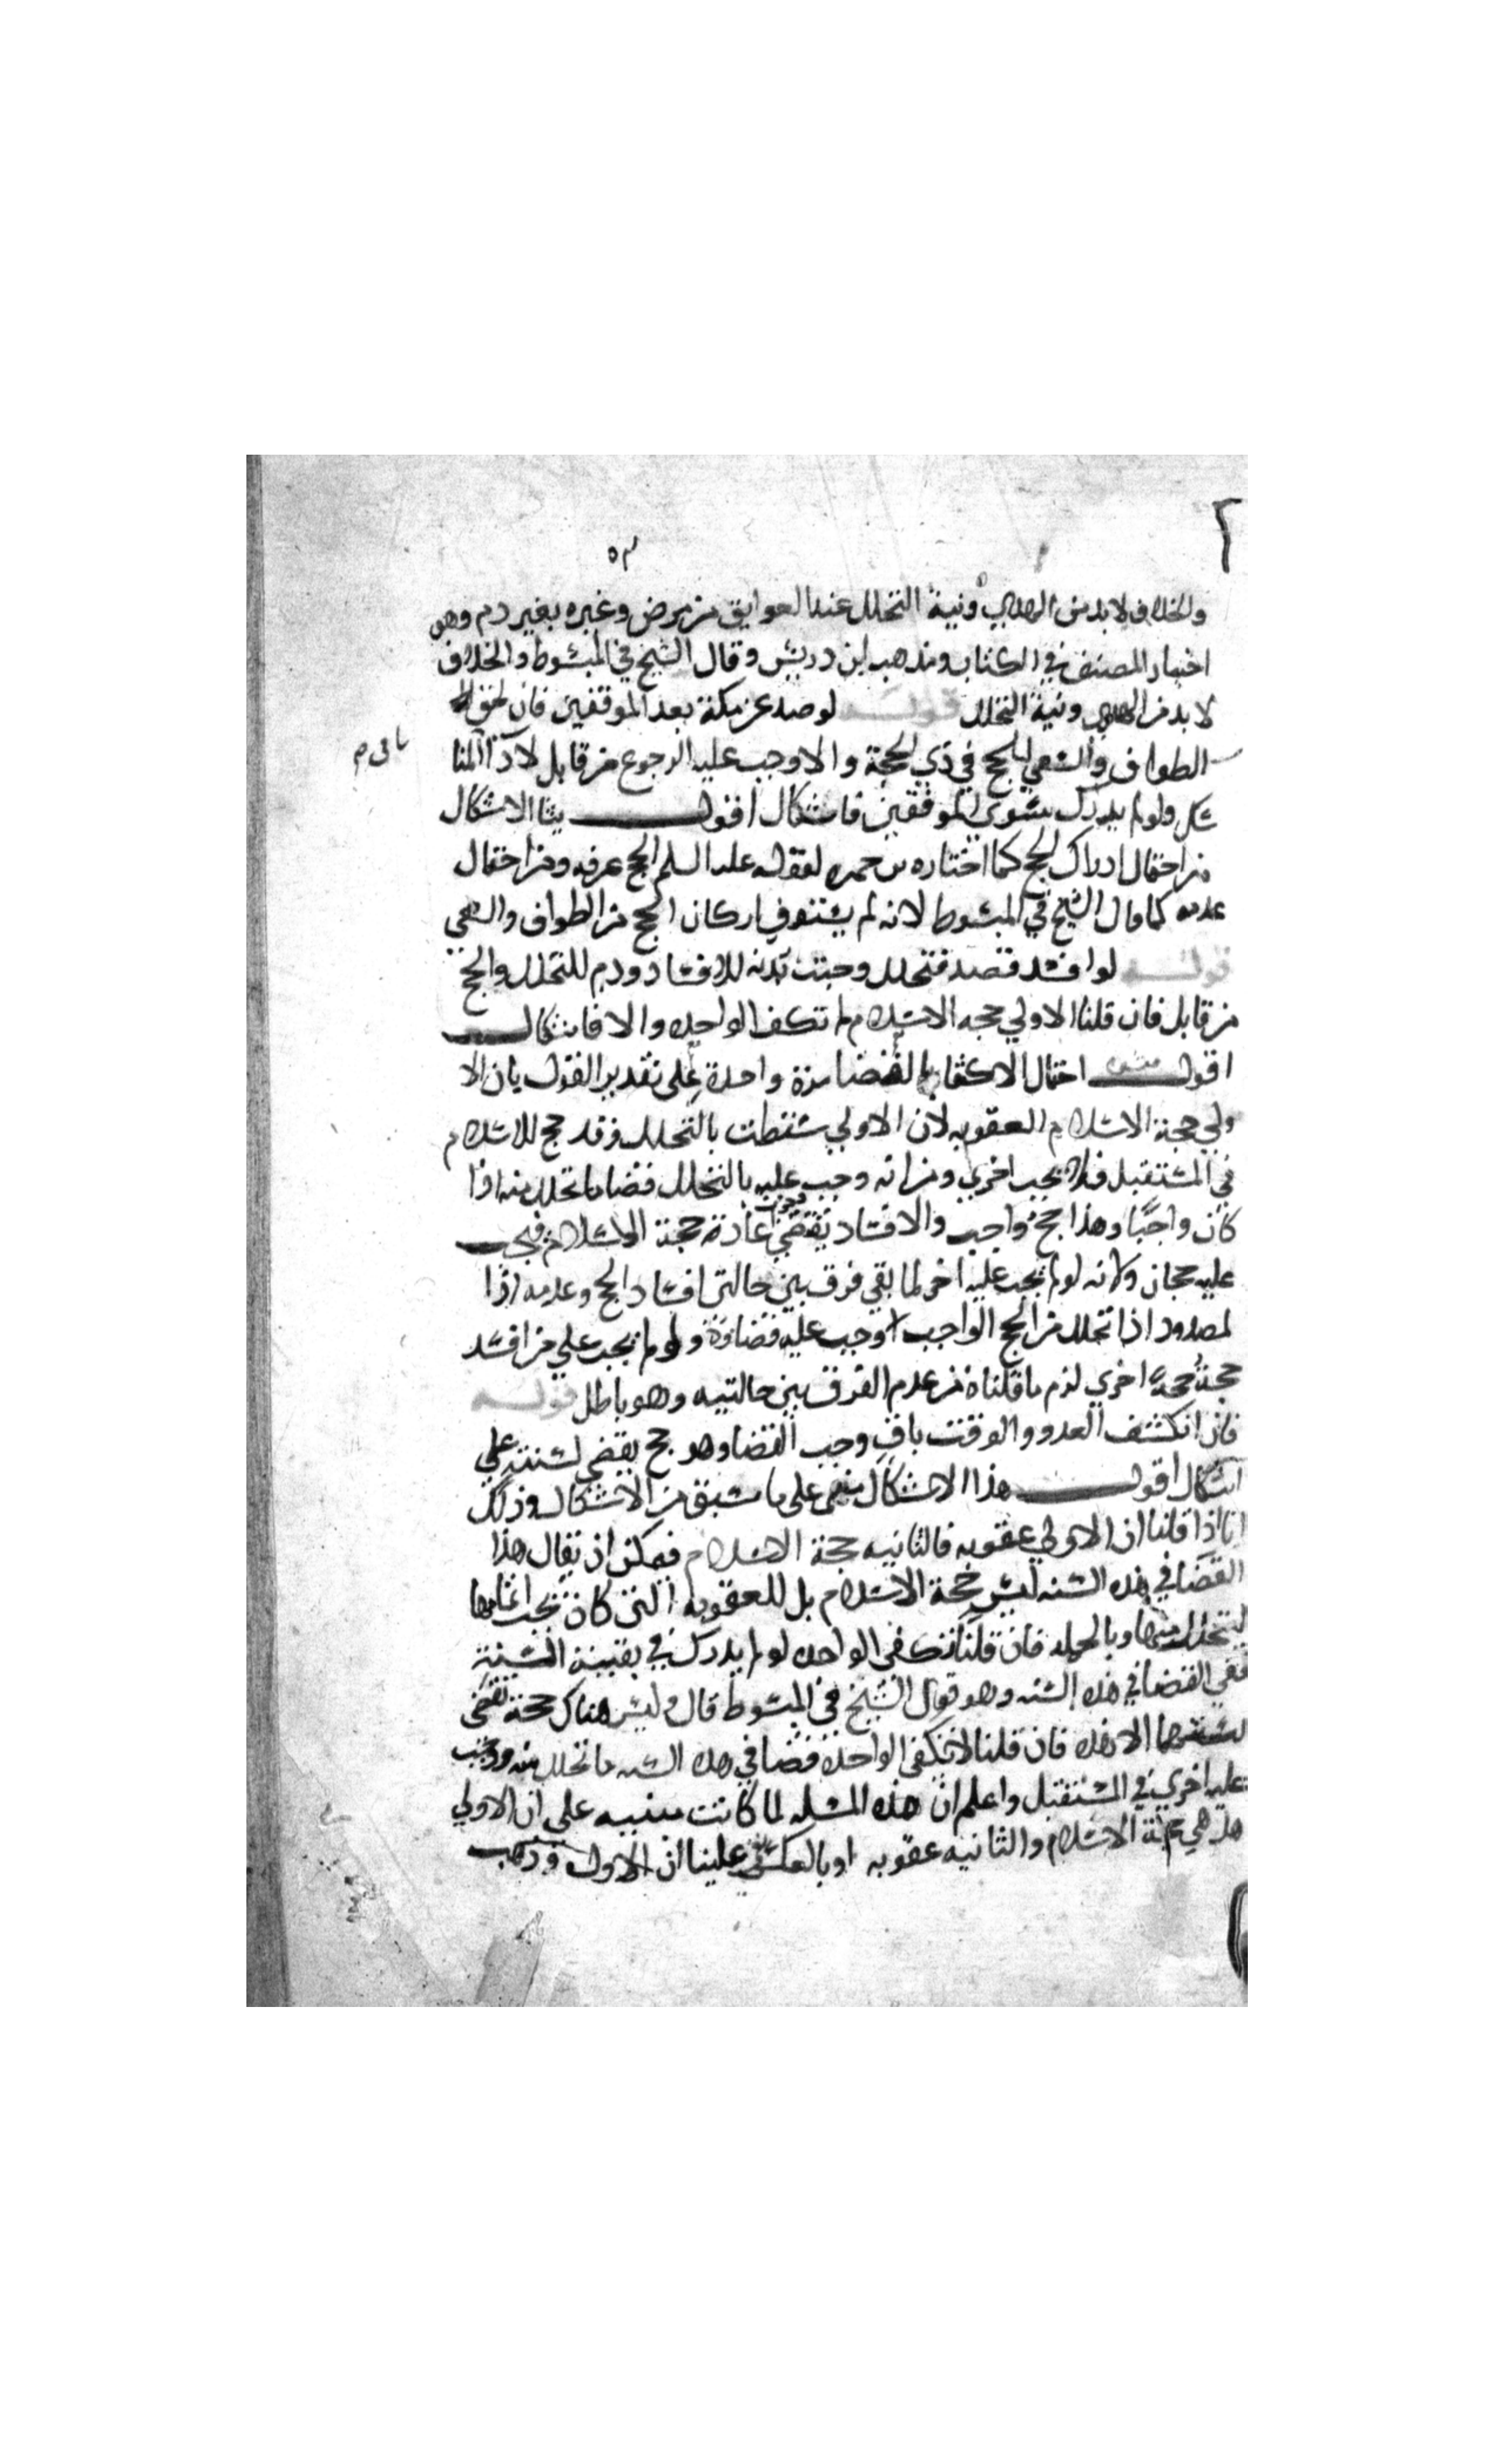 ٥٣
والخلاف لابد من الهدي ونية التحلل عند العوايق من مرض وغيره بغير دم وهو
اختيار المصنف في الكتاب ومذهب ابن دريس وقال الشيخ في المبسوط والخلاف
لا بد من الهدي ونية التحلل قوله لو صد عن مكة بعد الموقفين فان لحق
الطواف والسعي للحج في ذي الحجة والا وجب عليه الرجوع من قابل لاداء
باقي م
سك ولو لم يدرك سوى الموقفين فاشكال اقول ينشا الاشكال
من احتمال ادراك الحج كما اختاره بن حمزه لقوله عليه السلم الحج عرفه ومن احتمال
عدمه كما قال الشيخ في المبسوط لانه لم يستوف اركان الحج من الطواف والسعي
قوله لو افسد فصد فتحلل وجبت بدنه للافساد ودم للتحلل والحج
من قابل فان قلنا الاولي حجه الاسلام لم تكف الواحده والا فاشكال
اقول احتمال الاكتفا بالقضا مرة واحدة على تقدير القول بان الا
ولي حجة الاسلام العقوبه لان الاولي سقطت بالتحلل وقد حج للاسلام
في المستقبل فلا يجب اخري ومن انه وجب عليه بالتحلل قضا ما تحلل منه اذا
كان واجبا وهذا حج واجب والافساد يقتضي وجوب اعادة حجة الاسلام فيجب
عليه حجان ولانه لو لم يجب عليه اخر لما بقي فرق بين حالتي افساد الحج وعدمه اذا
لمصدود اذا تحلل من الحج الواجب وجب عليه قضاؤه ولو لم يجب علي من افسد
حجة حجة اخري لزم ما قلناه من عدم الفرق بين حالتيه وهو باطل قوله
فان انكشف العدو والوقت باق وجب القضا وهو حج يقضي لسنته علي
اشكال اقول هذا الاشكال مبني على ما سبق من الاشكال وذلك
انا اذا قلنا ان الاولي عقوبه فالثانيه حجة الاسلام فيمكن ان يقال هذا
القضا في هذه السنه ليس حجة الاسلام بل للعقوبه التي كان يجب اتمامها
ليتحلل منها وبالجمله فان قلنا تكفي الواحده لو لم يدرك في بقية السنة
كفي القضا في هذه السنه وهو قول الشيخ في المبسوط قال وليس هناك حجة تقضي
لسنتها الا هذه فان قلنا لا تكفي الواحدة قضا في هذه السنه ما تحلل منه ووجب
عليه اخري في المستقبل واعلم ان هذه المسله لما كانت مبنيه على ان الاولي
هل هي حجة الاسلام والثانيه عقوبه او بالعكس علينا ان الاول وذهب